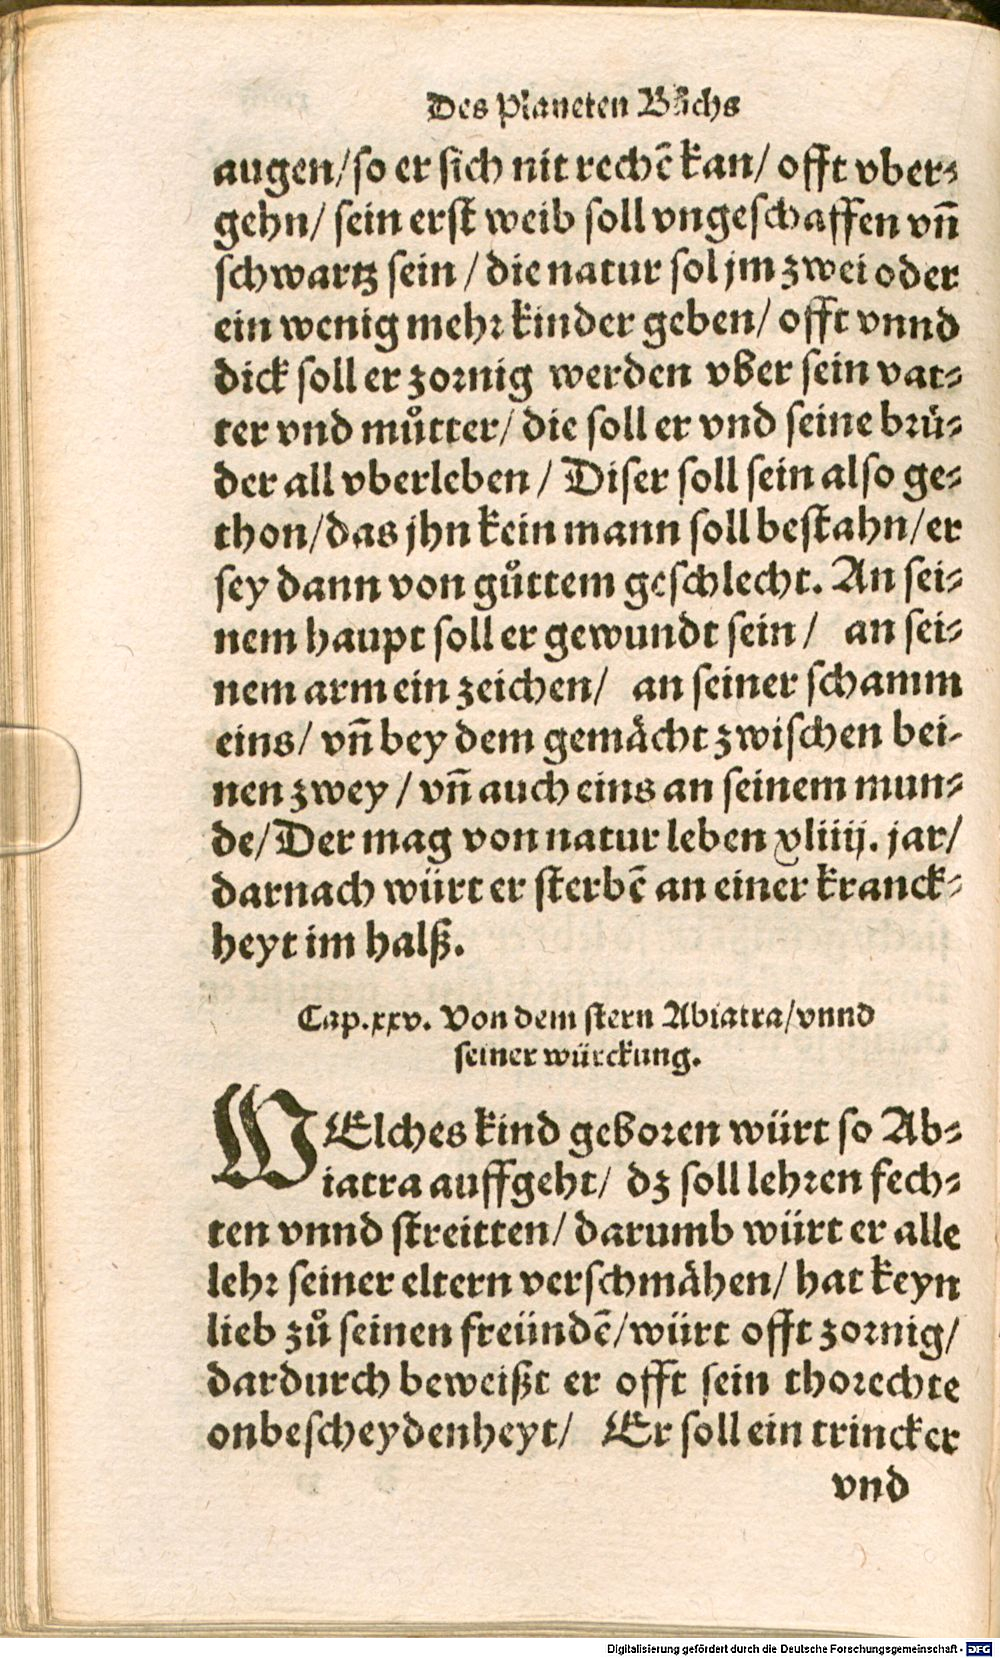 Des Planeten Bůchs
augen/so er sich nit rechẽ kan/ offt vber⸗
gehn/ sein erst weib soll vngeschaffen vñ
schwartz sein / die natur sol jm zwei oder
ein wenig mehr kinder geben/ offt vnnd
dick soll er zornig werden vber sein vat⸗
ter vnd můtter/ die soll er vnd seine brü⸗
der all vberleben / Diser soll sein also ge⸗
thon/das jhn kein mann soll bestahn/er
sey dann von gůttem geschlecht. An sei⸗
nem haupt soll er gewundt sein / an sei⸗
nem arm ein zeichen/ an seiner schamm
eins/ vñ bey dem gemächt zwischen bei⸗
nen zwey / vñ auch eins an seinem mun⸗
de/Der mag von natur leben xliiij. jar/
darnach würt er sterbẽ an einer kranck⸗
heyt im halß.
Cap.xxv. Von dem stern Abiatra/vnnd
seiner würckung.
WElches kind geboren würt so Ab⸗
iatra auffgeht/ dz soll lehren fech⸗
ten vnnd streitten/ darumb würt er alle
lehr seiner eltern verschmähen/ hat keyn
lieb zů seinen freündẽ/würt offt zornig/
dardurch beweißt er offt sein thorechte
onbescheydenheyt/ Er soll ein trincker
vnd
Digitalisierung gefördert durch die Deutsche Forschungsgemeinschaft - DFG